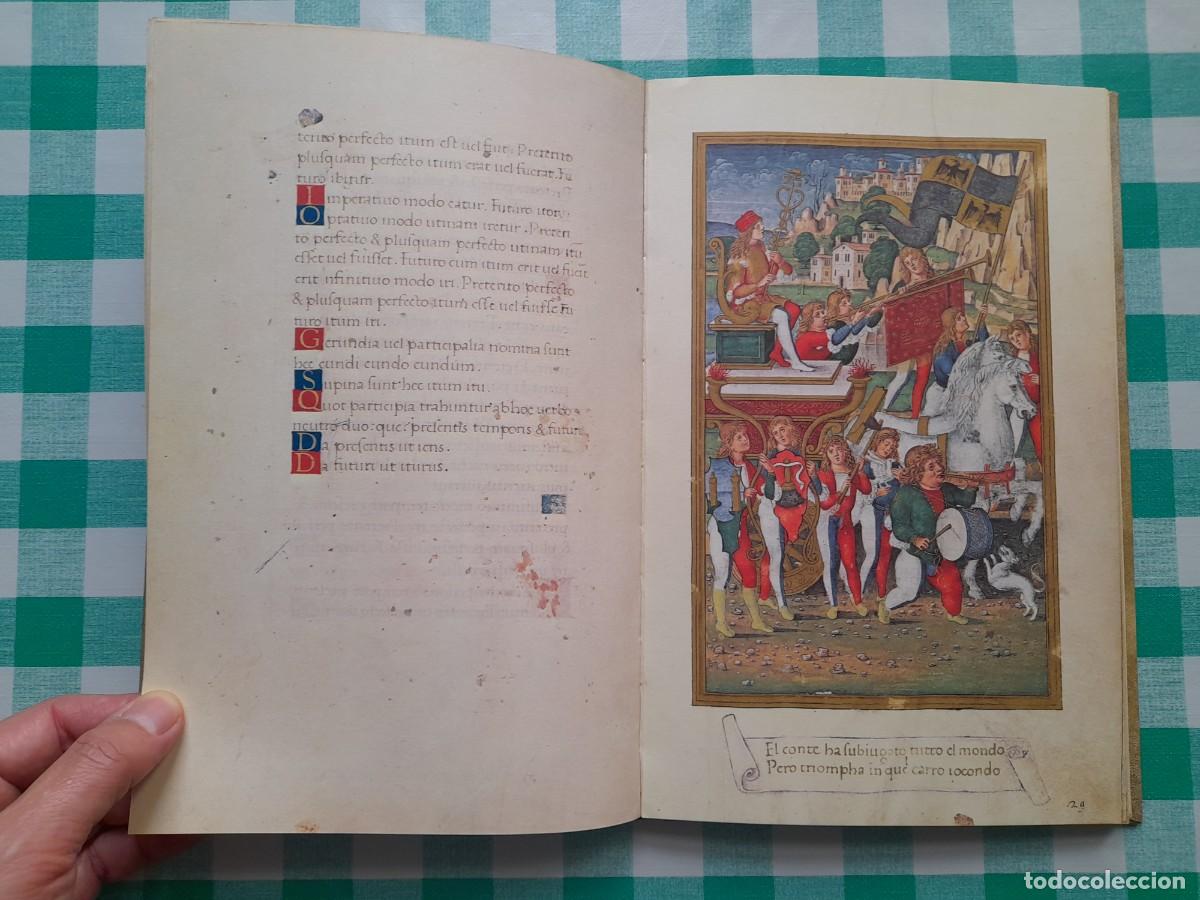 terito perfecto itum est uel fuit. Preterito
plusquam perfecto itum erat uel fuerat. Fu
turo ibitur.
Imperatiuo modo eatur. Futuro itor.
Optatiuo modo utinam iretur. Preteri
to perfecto & plusquam perfecto utinam itū
esset uel fuisset. Futuro cum itum erit uel fuerit
erit infinitiuo modo iri. Preterito perfecto
& plusquam perfecto itum esse uel fuisse Fu
turo itum iri.
Gerundia uel participalia nomina sunt
hec eundi eundo eundum.
Supina sunt hec itum itu.
Quot participia trahuntur ab hoc uerbo
neutro duo: que: presentis temporis & futuri
Da presentis ut iens.
Da futuri ut iturus.
El conte ha subiugato tutto el mondo
Pero triompha in que carro iocondo
29
todocoleccion